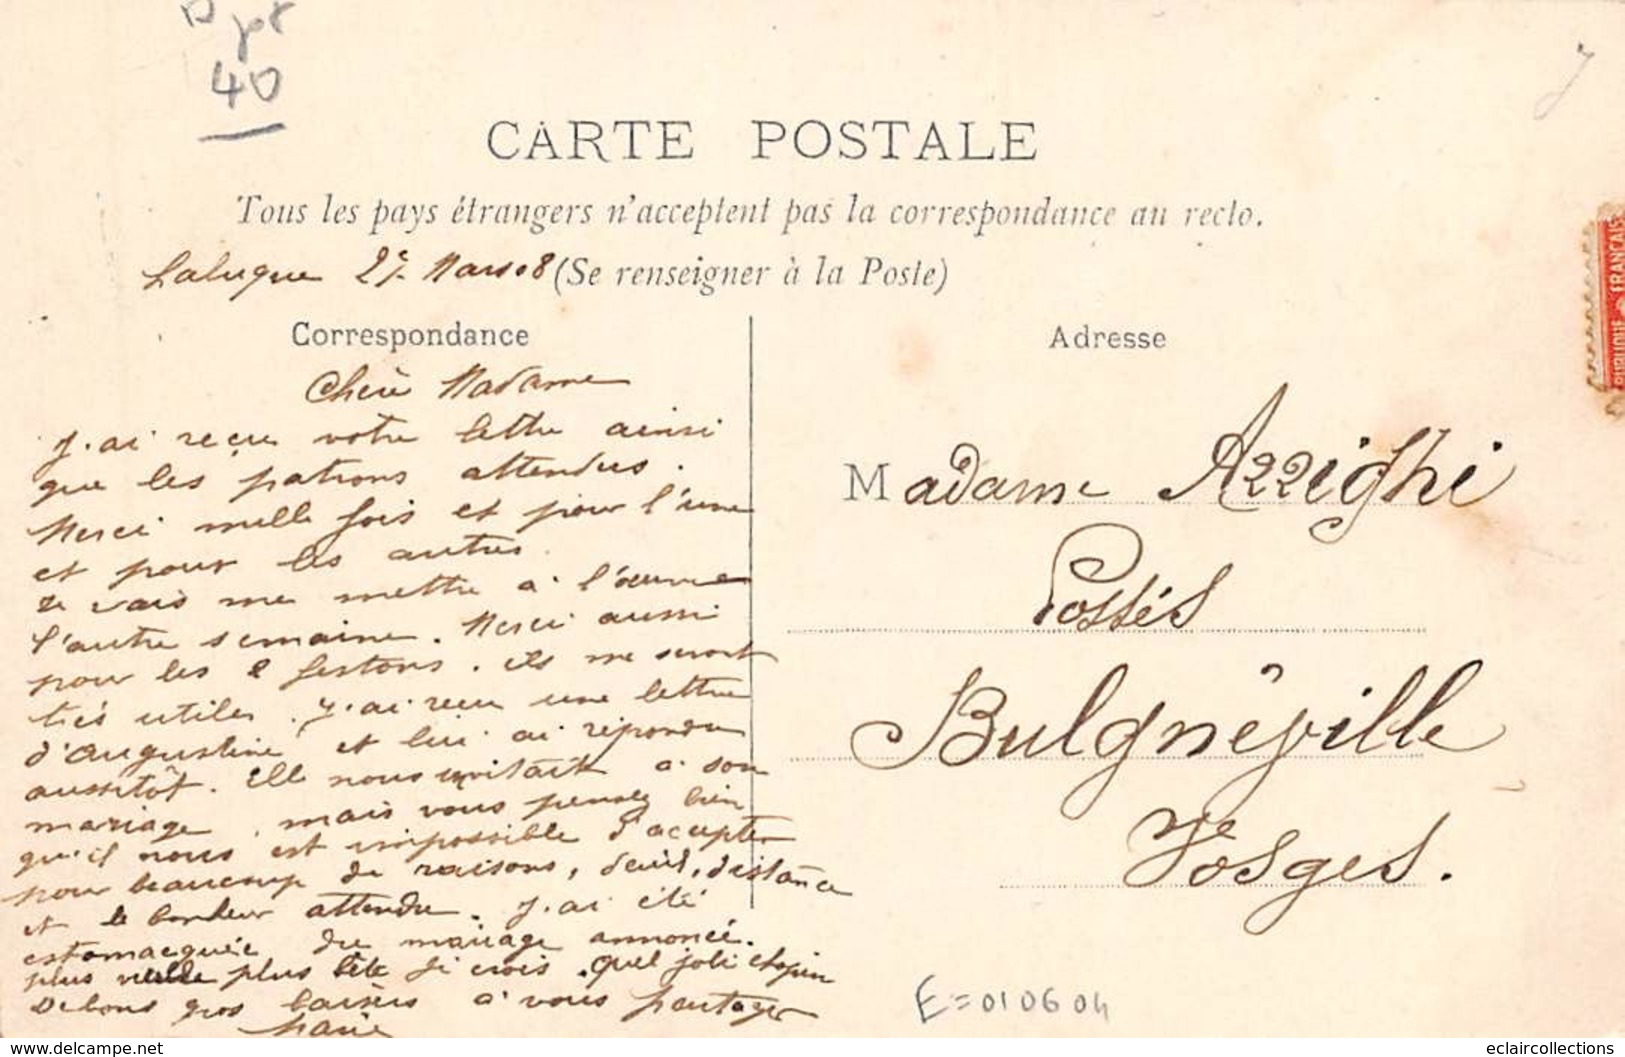 Dpt
40
CARTE POSTALE
Tous les pays étrangers n'acceptent pas la correspondance au recto.
Laluque Mars 08 (Se renseigner à la Poste)
Correspondance
Adresse
Chère Madame
J'ai reçu votre lettre ainsi
que les patrons attendus.
Merci mille fois et pour l'une
et pour les autres.
Je vais me mettre à l'œuvre
l'autre semaine. Merci aussi
pour les 2 festons. ils me seront
très utiles. J'ai reçu une lettre
d'augustine et lui ai répondu
aussitôt. Elle nous invitait à son
mariage, mais vous pensez bien
qu'il nous est impossible d'accepter
pour beaucoup de raisons, deuil, distance
et le bonheur attendu. J'ai été
estomacquée du mariage annoncé.
plus vieille plus bête je crois. Quel joli chopin
De bons gros baisers à vous partager
Marie
Madame Azzighi
Possés
Bulgnéville
Vosges.
FRANÇAIS
E=010604
delcampe.net
eclaircollections